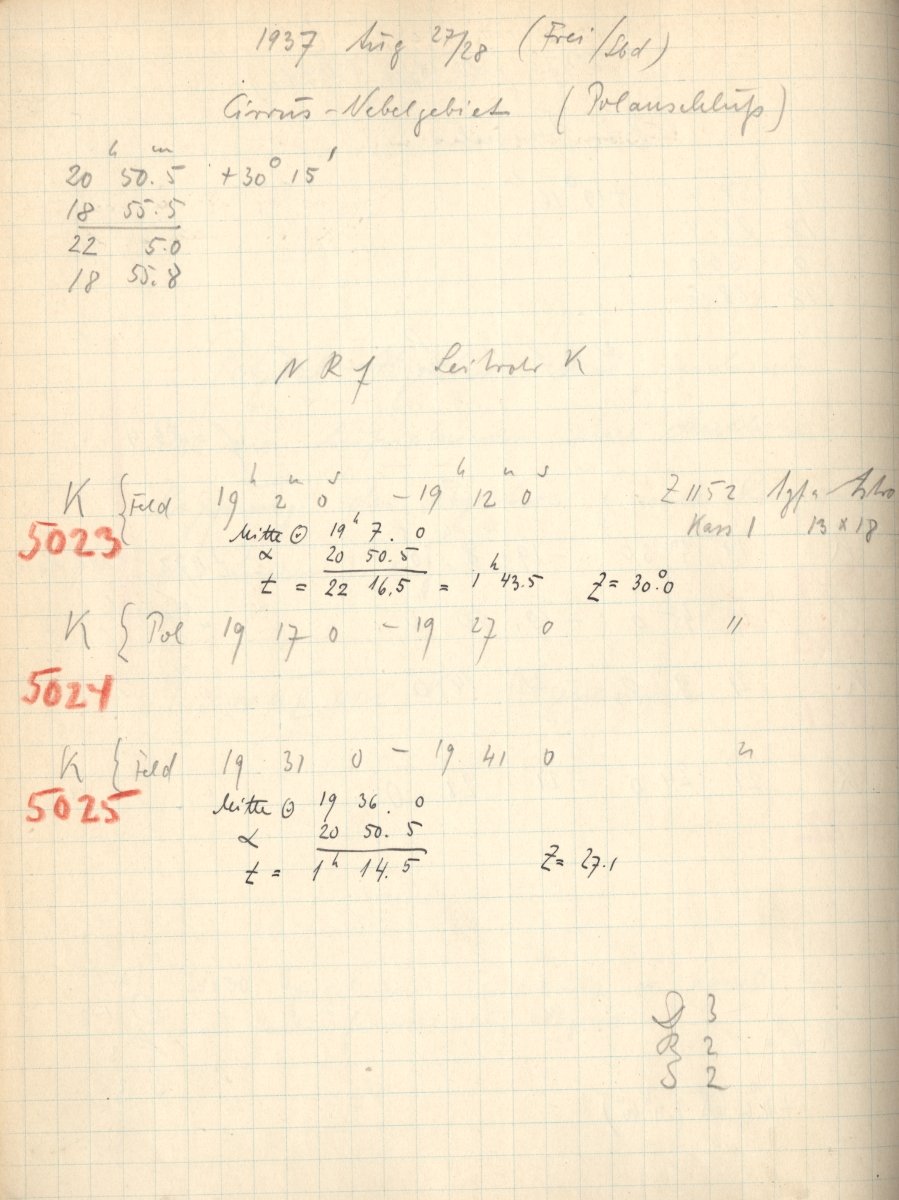 1937 Aug 27/28 (Frei/Sbd)
Cirrus-Nebelgebiet (Polanschluß)
20 h 50. m 5 +30° 15'
18 55.5
22 5.0
18 55.8
N R f Leitrohr K
K { Feld 19 h 2 m 0 s - 19 h 12 m 0 s Z 1152 Agfa Astro
5023 Mitte ⊙ 19 h 7. 0 Kass 1 13 x 18
α 20 50.5
t = 22 16.5 = 1 h 43.5 Z = 30°.0
K { Pol 19 17 0 - 19 27 0 "
5024
K { Feld 19 31 0 - 19 41 0 "
5025 Mitte ⊙ 19 36. 0
α 20 50. 5
t = 1 h 14. 5 Z = 27.1
D 3
R 2
S 2